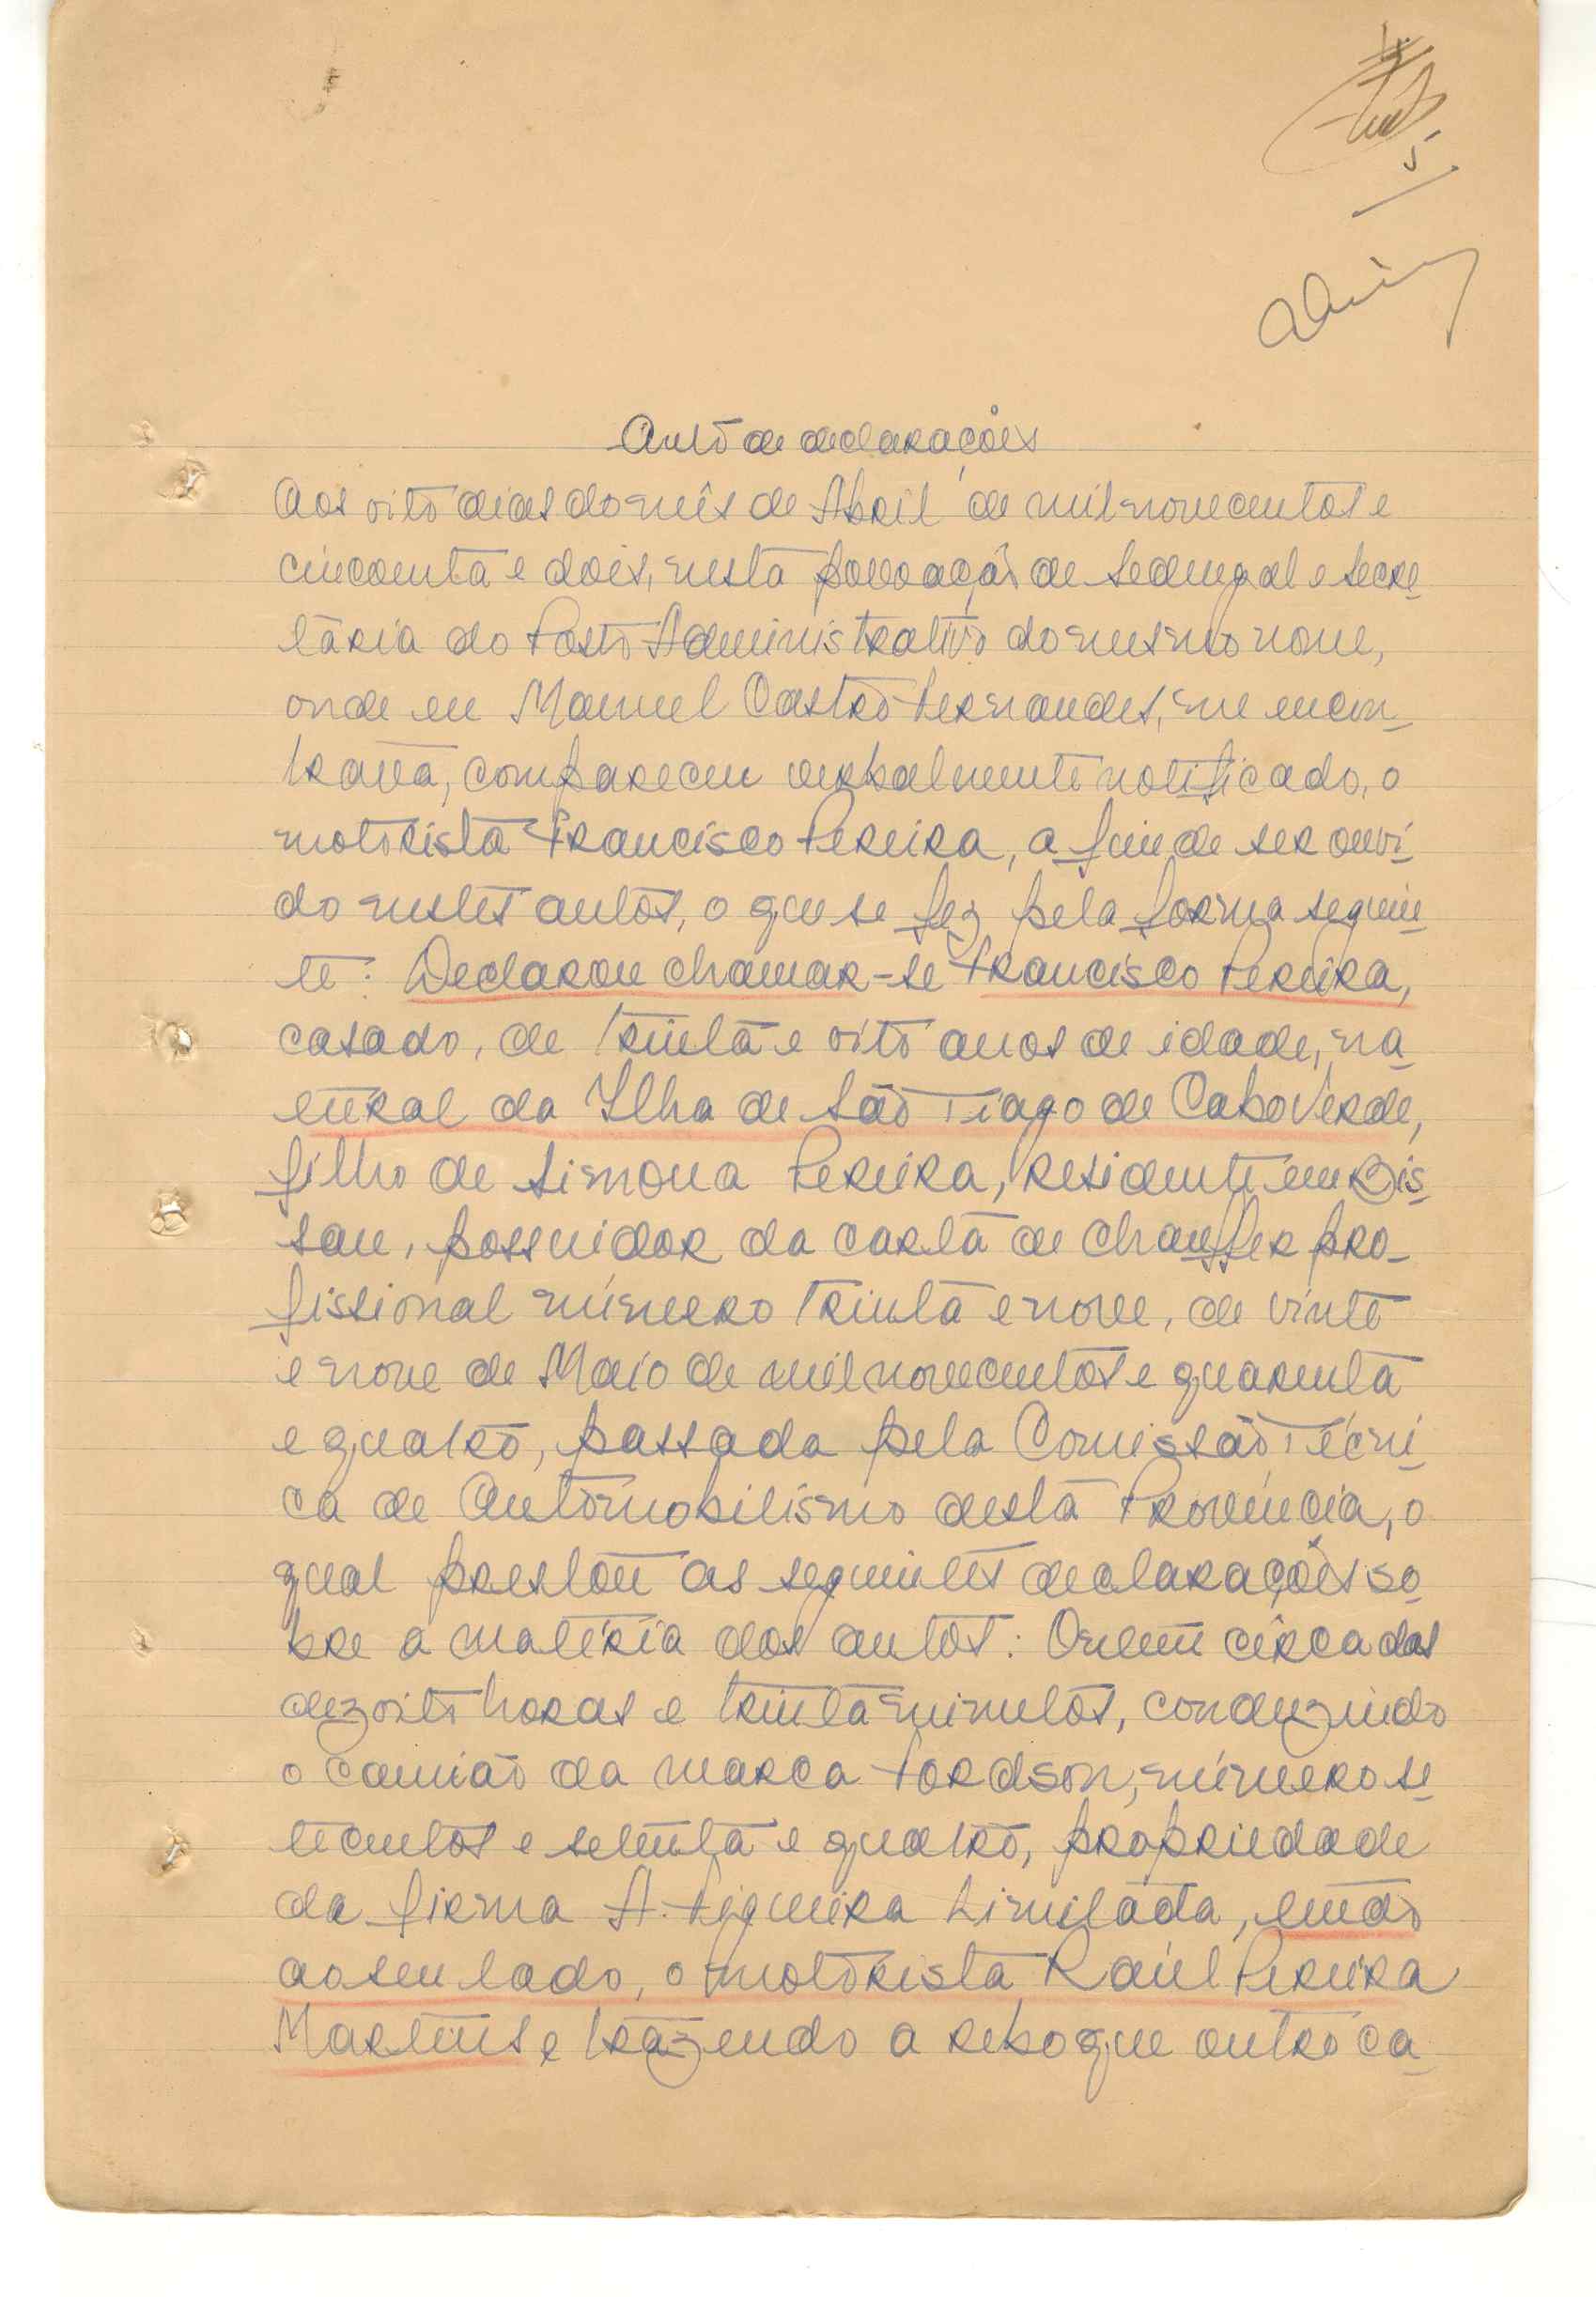 5
Auto de declarações
Aos oito dias do mês de Abril de mil novecentos e
cincoenta e dois, nesta povoação de Sedengal e secre-
tária do Posto Administrativo do mesmo nome,
onde eu Manuel Castro Fernandes, me encon-
trava, compareceu verbalmente notificado, o
motorista Francisco Pereira, a fim de ser ouvi-
do nestes autos, o que se fez pela forma seguin-
te: Declarou chamar-se Francisco Pereira,
casado, de trinta e oito anos de idade, na-
tural da Ilha de São Tiago de Cabo Verde,
filho de Simona Pereira, residente em Bis-
sau, possuidor da carta de chauffer pro-
fissional número trinta e nove, de vinte
e nove de Maio de mil novecentos e quarenta
e quatro, passada pela Comissão Técni-
ca de Automobilismo desta Província, o
qual prestou as seguintes declarações so-
bre a matéria dos autos: Ontem cêrca das
dezoito horas e trinta minutos, conduzindo
o camião da marca Fordson, número se-
tecentos e setenta e quatro, propriedade
da firma A. Figueira Limitada, tendo
ao seu lado, o motorista Raúl Pereira
Martins e trazendo a reboque outro ca-